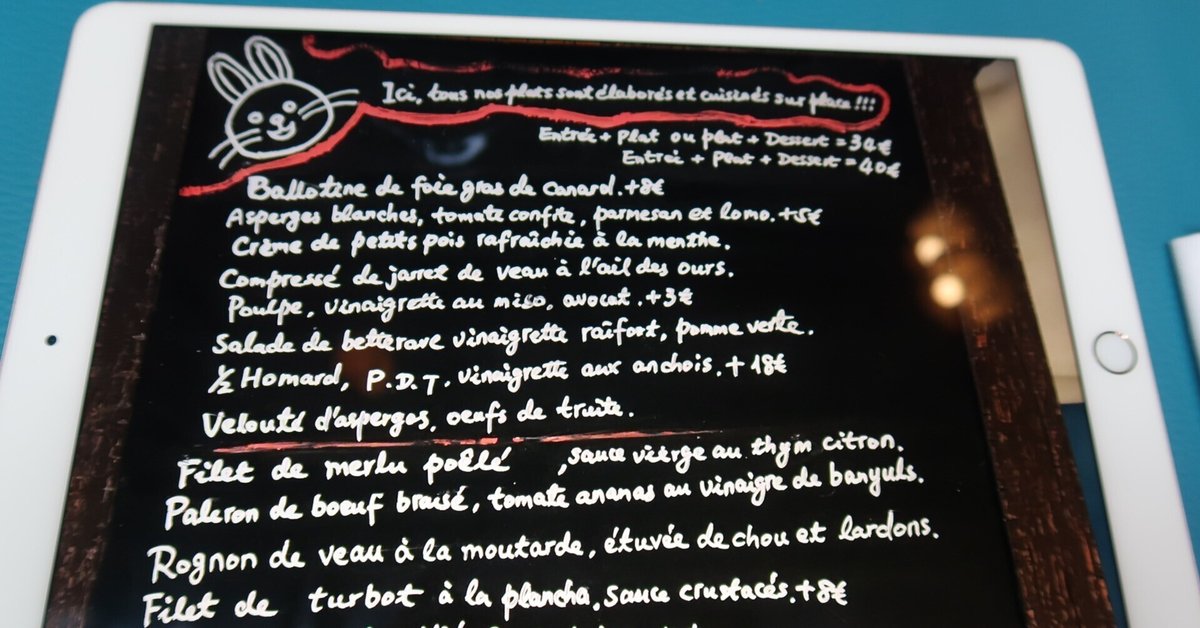 Ici, tous nos plats sont élaborés et cuisinés sur place !!!
Entrée + Plat ou plat + Dessert = 34€
Entrée + Plat + Dessert = 40€
Ballotine de foie gras de canard. +8€
Asperges blanches, tomate confite, parmesan et lomo. +5€
Crème de petits pois rafraîchie à la menthe.
Compressé de jarret de veau à l'ail des ours.
Poulpe, vinaigrette au miso, avocat. +3€
Salade de betterave vinaigrette raifort, pomme verte.
1/2 Homard, P.D.T. vinaigrette aux anchois. + 18€
Velouté d'asperges, oeufs de truite.
Filet de merlu poêlé , sauce vierge au thym citron.
Paleron de boeuf braisé, tomate ananas au vinaigre de banyuls.
Rognon de veau à la moutarde, étuvée de chou et lardons.
Filet de turbot à la plancha, sauce crustacés. +8€